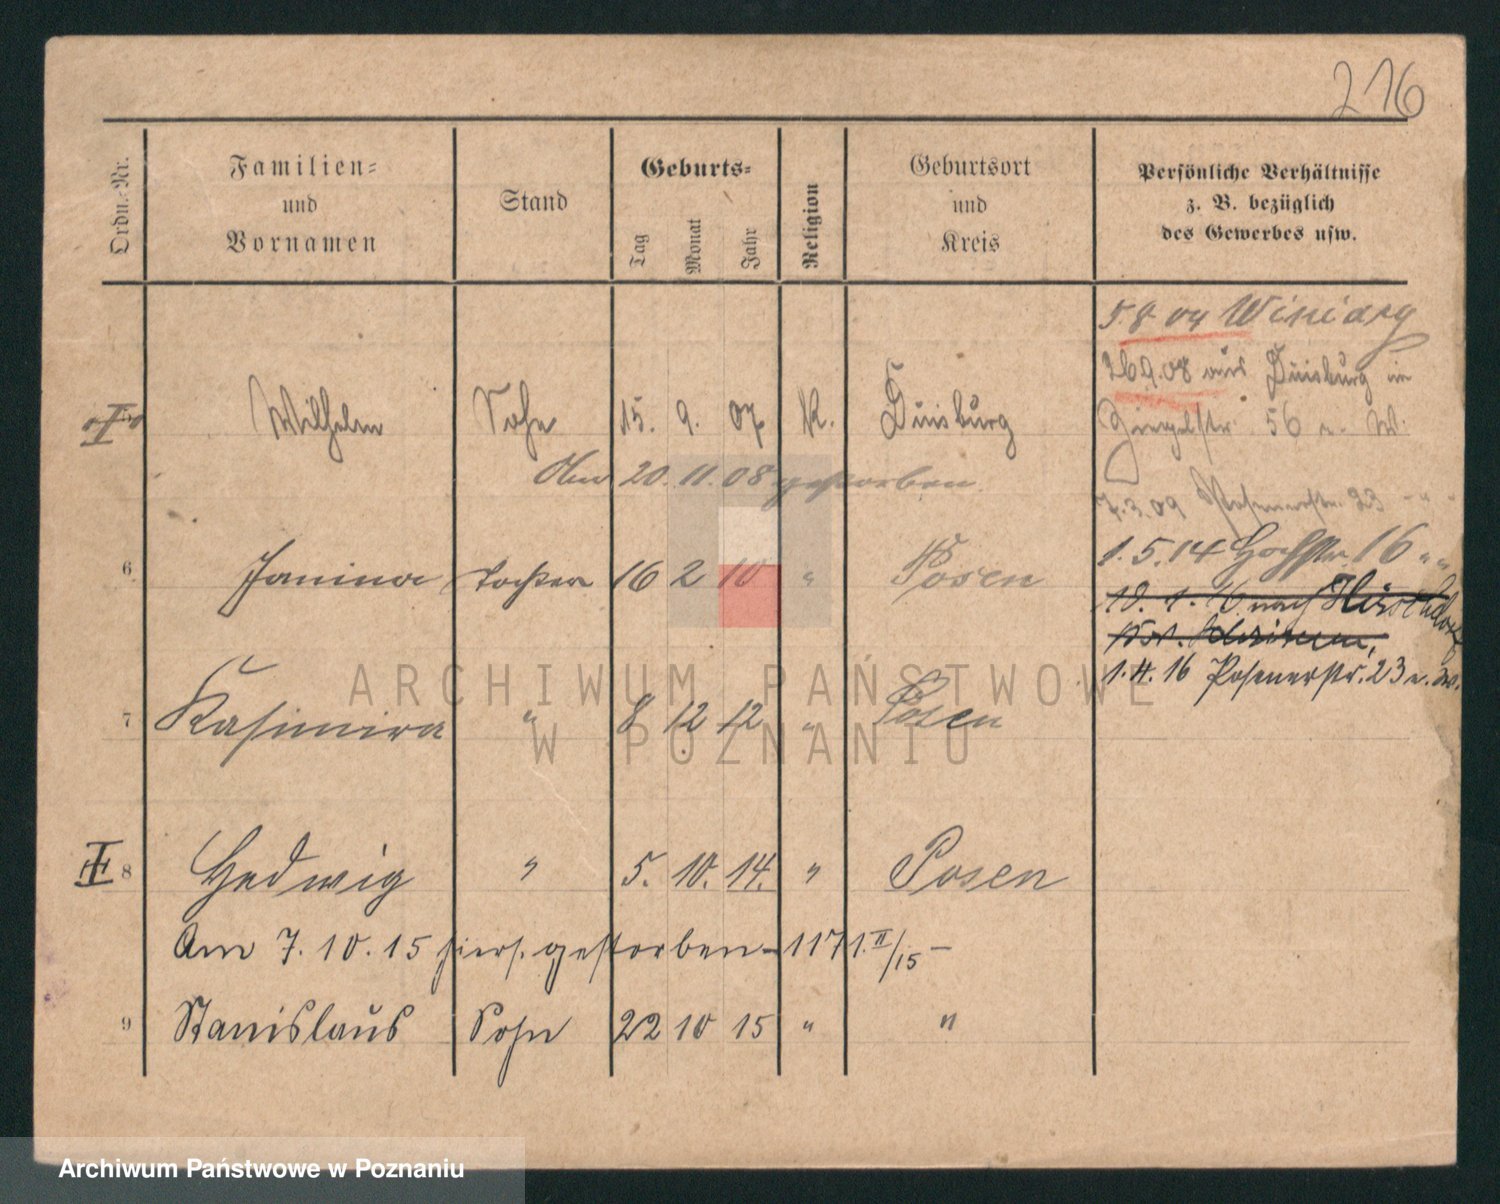 216
Ordn.-Nr.
Familien-
und
Vornamen
Stand
Geburts-
Tag
Monat
Jahr
Religion
Geburtsort
und
Kreis
Persönliche Verhältnisse
z. B. bezüglich
des Gewerbes usw.
5.8.04 Winiary
26.9.08 aus Duisburg in
Wilhelm Sohn 15. 9. 07 K. Duisburg
56 n. W.
Am 20.11.08 gestorben
7.3.09 Posenerstr. 23 - " -
1.5.14 Hochstr. 16 " "
6 Janina Tochter 16 2 10 " Posen
18. 1. 16 nach
1.4.16 Posenerstr. 23 n. W.
ARCHIWUM PAŃSTWOWE
W POZNANIU
7 Kasimira " 8 12 12 " Posen
8 Hedwig " 5. 10. 14. " Posen
Am 7.10.15 hiers. gestorben - 1171.II/15 -
9 Stanislaus Sohn 22 10 15 " "
Archiwum Państwowe w Poznaniu